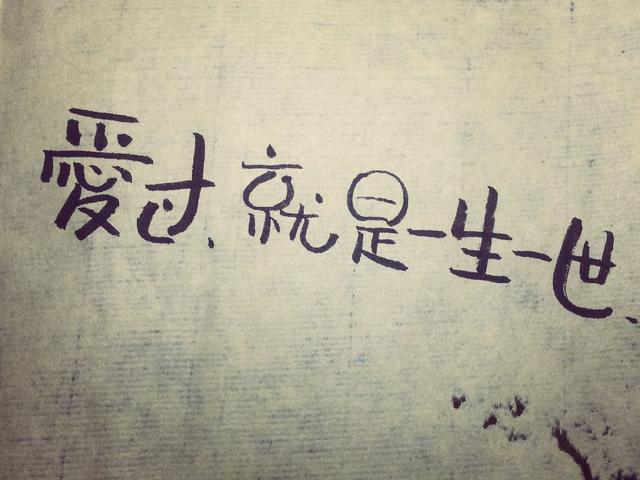 愛过、就是一生一世、